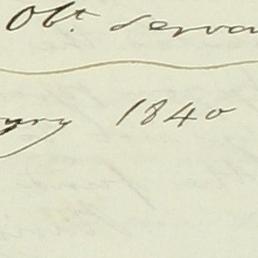 Obt. Serva
ury 1840